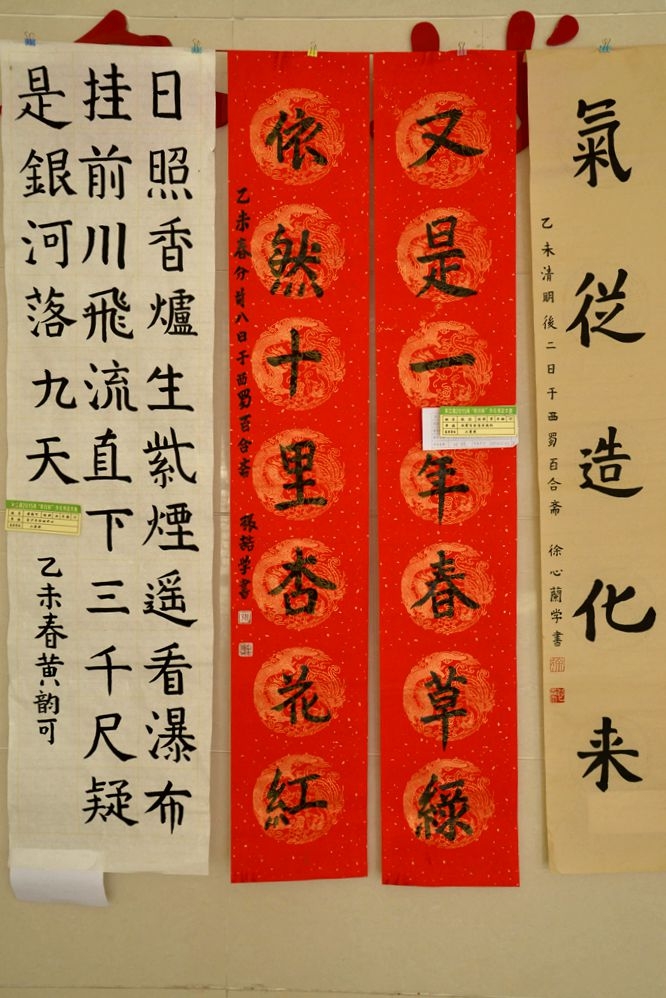 氣從造化来
乙未清明後二日于西蜀百合斋 徐心蘭学書
又是一年春草綠
依然十里杏花紅
乙未春分前八日于西蜀百合斋 張喆学書
日照香爐生紫煙遥看瀑布
挂前川飛流直下三千尺疑
是銀河落九天
乙未春黄韵可